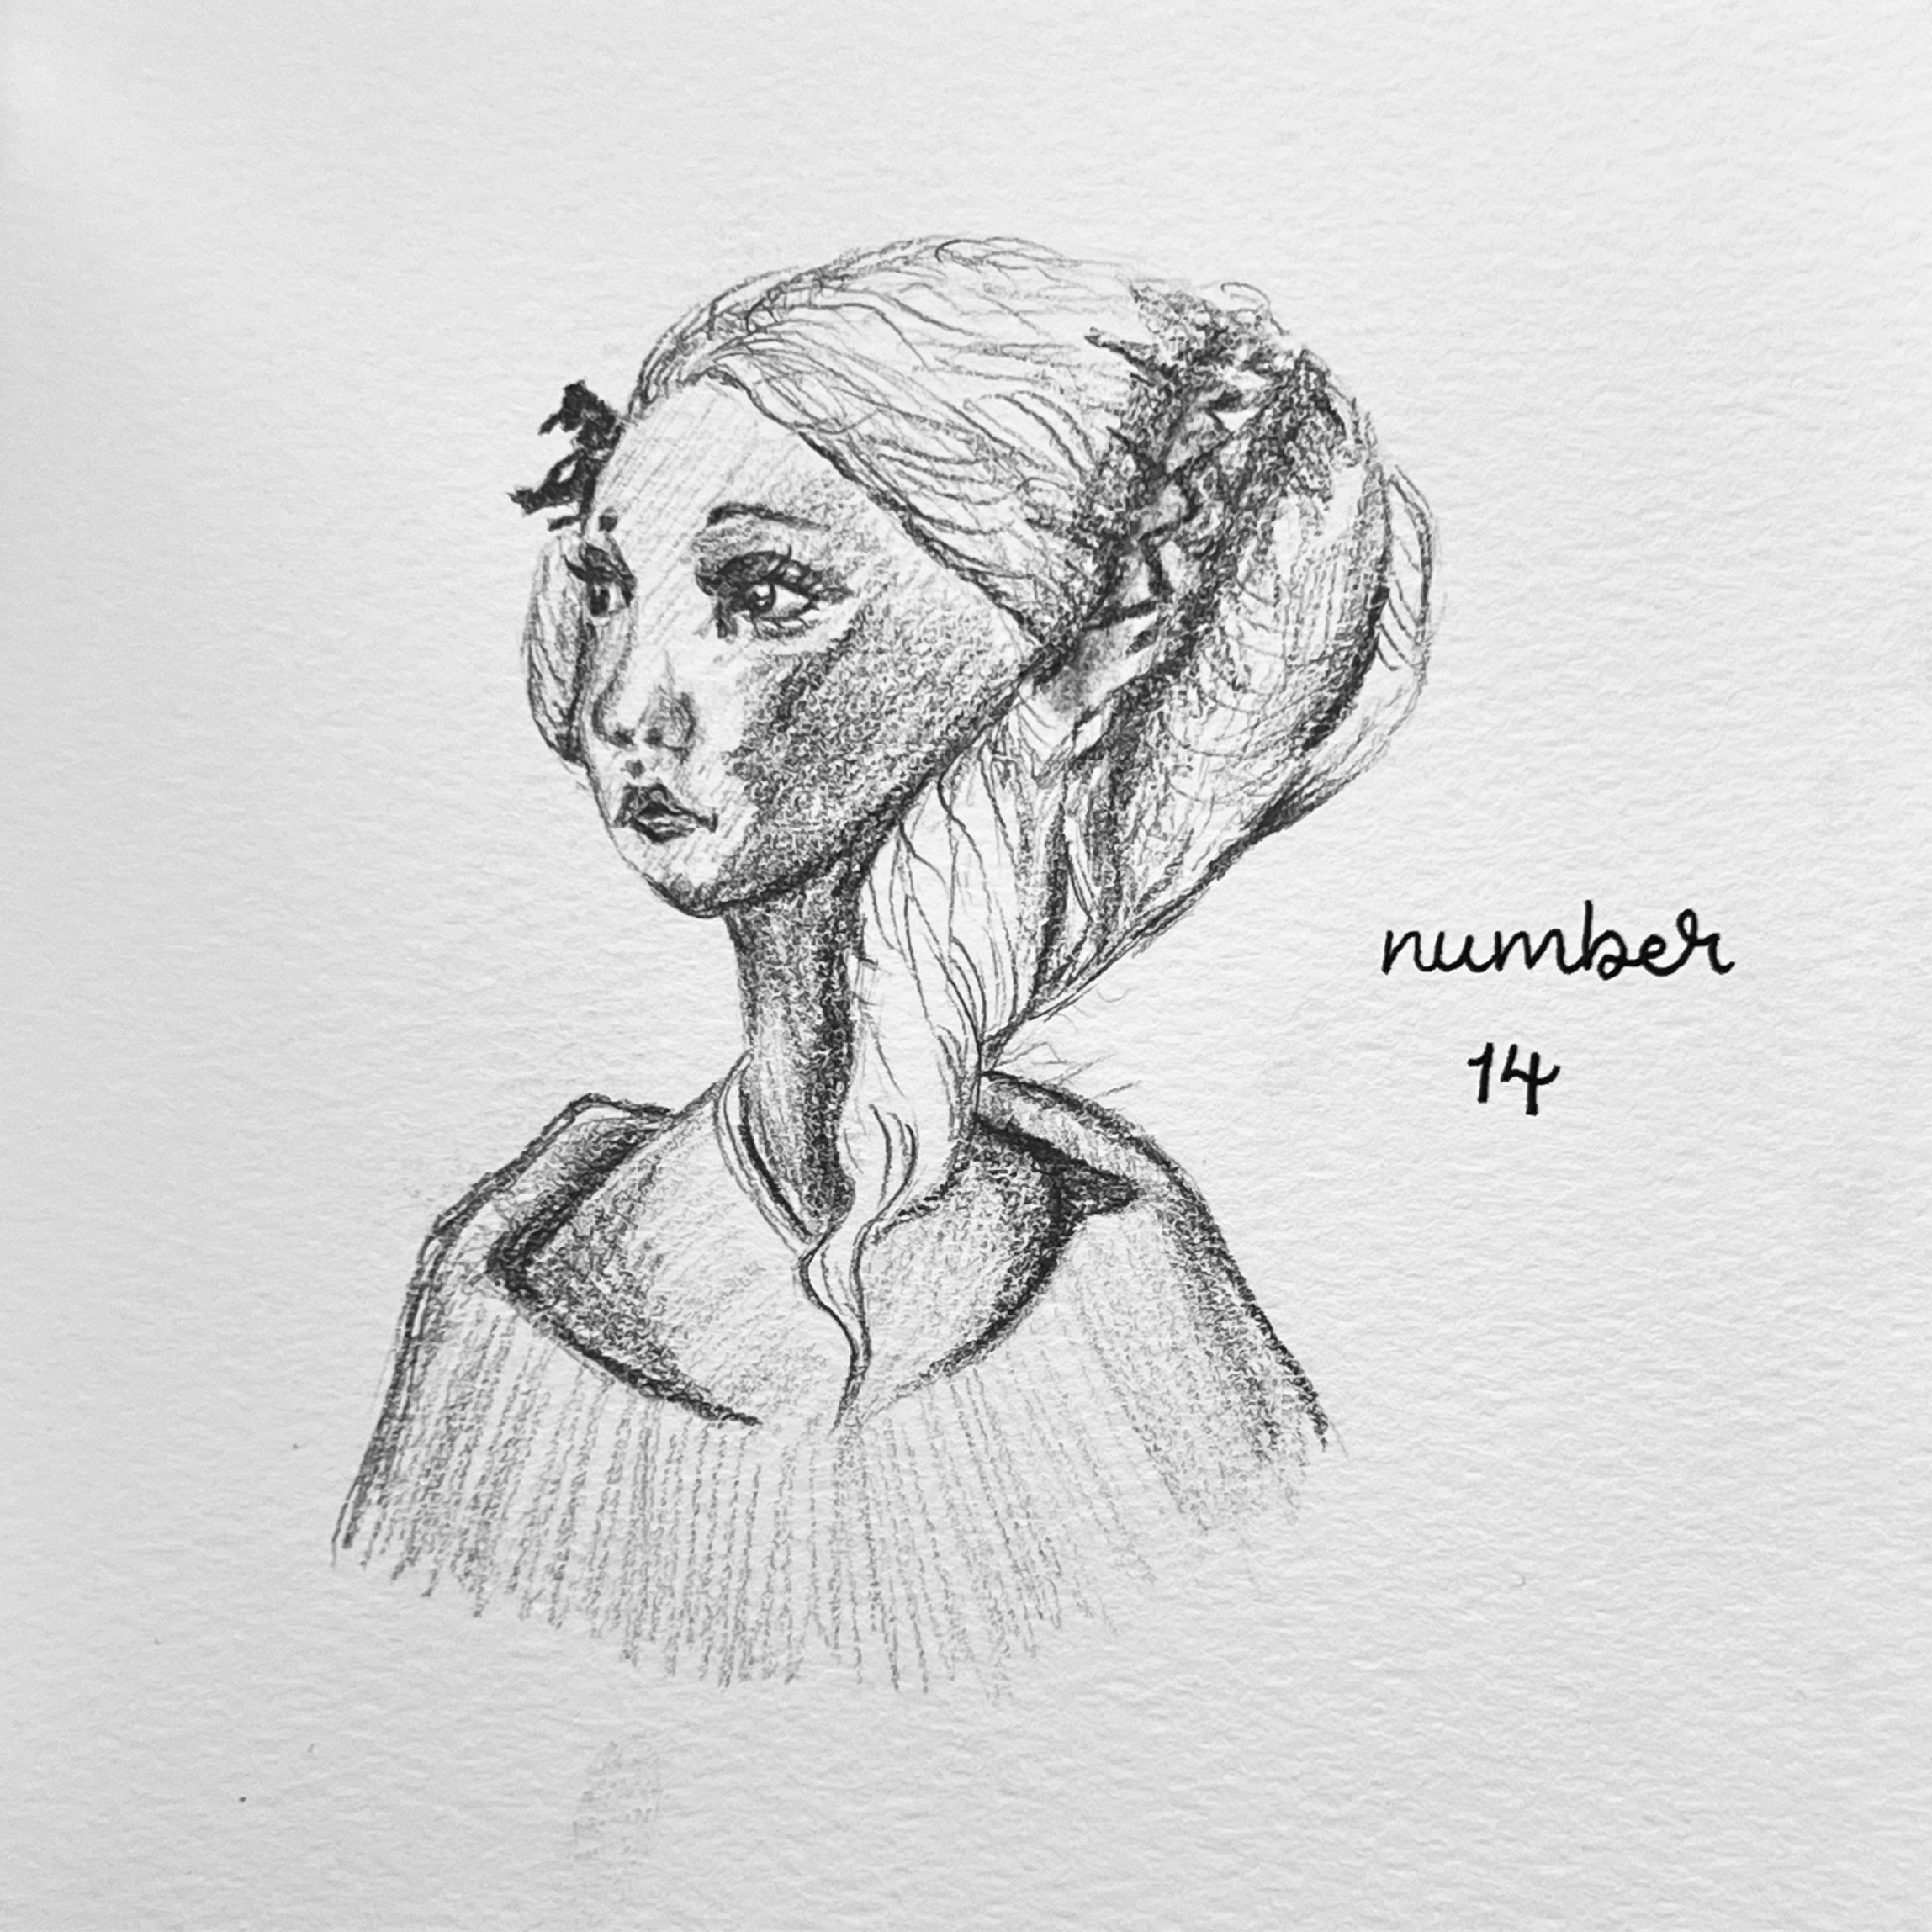 number
14